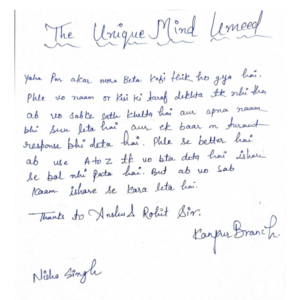 The Unique Mind Umeed
Yaha Par akar mera Beta kafi thik ho gya hai.
Phle vo naam or kisi ki taraf dekhta tk nhi tha
ab vo sabke sath khelta hai aur apna naam
bhi sun leta hai aur ek baar m turant
response bhi deta hai. Phle se better hai
ab use A to Z tk vo bta deta hai ishare
se bol nhi Pata hai. But ab vo sab
kaam ishare se kara leta hai.
Thanks to Anshu & Rohit Sir.
Kanpur Branch.
Nisha Singh